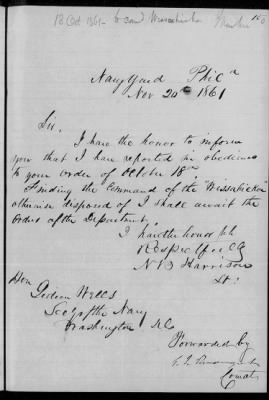 18 Oct 1861 - to comd. Wissahickon
Navy Yard Phila
Nov 20th 1861
Sir,
I have the honor to inform
you that I have reported in obedience
to your order of October 18th.
Finding the Command of the "Wissahickon"
otherwise disposed of I shall await the
orders of the Department.
I have the honor to be
Respectfully
N B Harrison
Lt.
Hon
Gideon Welles
Secy of the Navy
Washington D.C
Forwarded by
Comdt